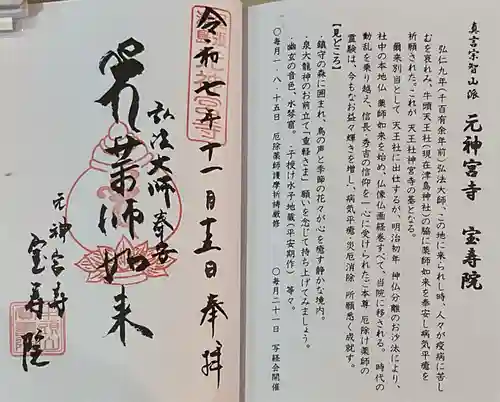 真言宗智山派 元神宮寺 宝寿院
弘仁九年(千百有余年前)弘法大師、この地に来られし時、人々が疫病に苦し
むを哀れみ、牛頭天王社(現在津島神社)の脇に薬師如来を奉安し病気平癒を
祈願された。これが 天王社神宮寺の基となる。
爾来別当として 天王社に出仕するが、明治初年 神仏分離のお沙汰により、
社中の本地仏 薬師如来を始め、仏像仏画経巻すべて、当院に移される。時代の
動乱を乗り越え、信長、秀吉の信仰を一心に受けられたご本尊 厄除け薬師の
霊験は、今もなお益々輝きを増し、病気平癒、災厄消除 所願悉く成就す。
【見どころ】
・鎮守の森に囲まれ、鳥の声と季節の花々が心を癒す静かな境内。
・泉大龍神のお前立て「重軽さま」願いを念じて持ち上げてみましょう。
・幽玄の音色、水琴窟。・子授け水子地蔵(平安期作) 等々。
〇毎月一・八・十五日 厄除薬師護摩祈祷厳修 〇毎月二十一日 写経会開催
令和七年十一月十五日 奉拝
弘法大師奉安
薬師如来
元神宮寺
宝寿院